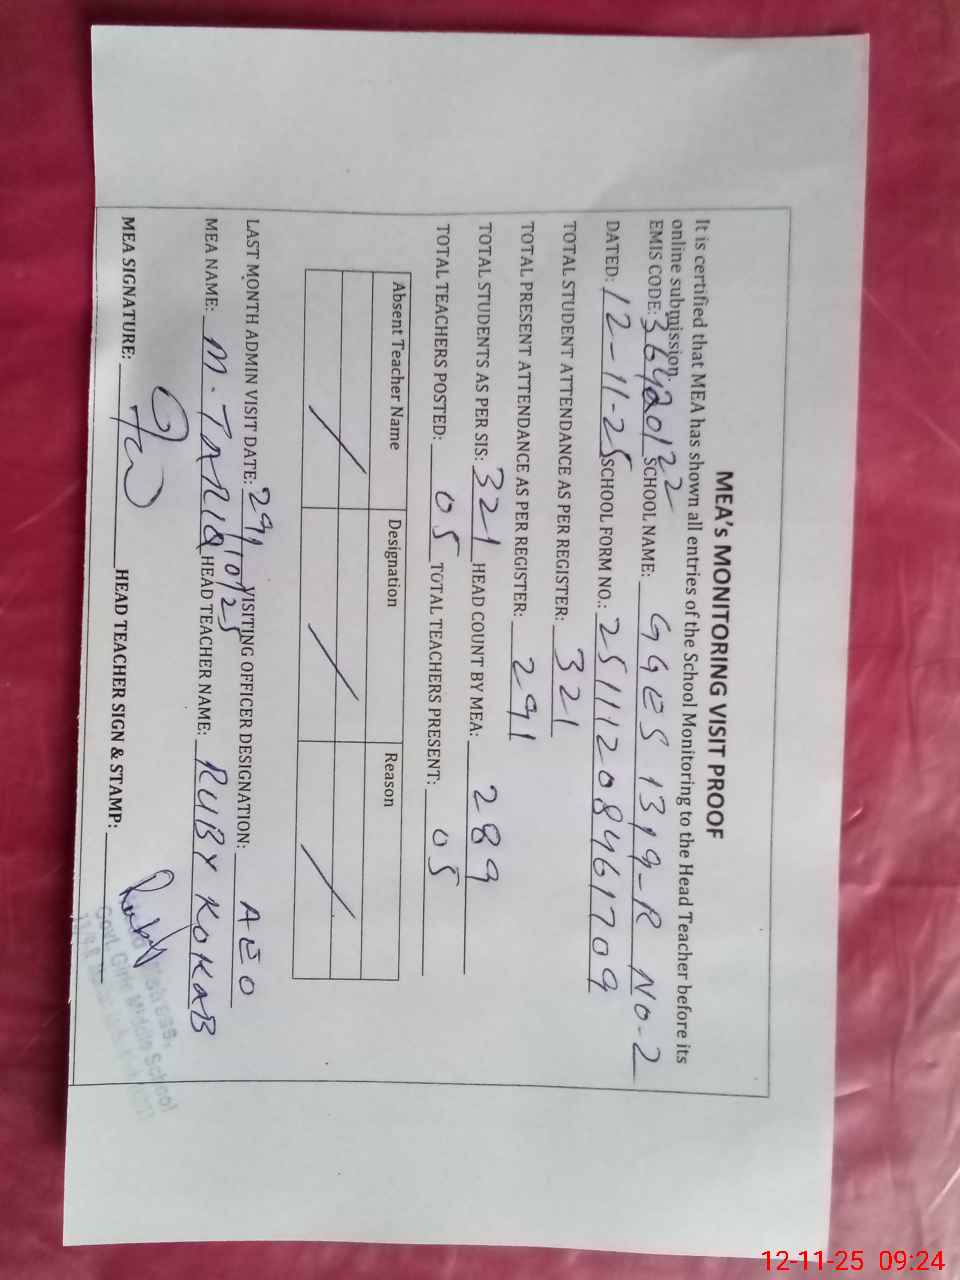 MEA's MONITORING VISIT PROOF
It is certified that MEA has shown all entries of the School Monitoring to the Head Teacher before its
online submission.
EMIS CODE: 36420122 SCHOOL NAME: GGES 1319-R NO-2
DATED: 12-11-25 SCHOOL FORM NO.: 25111208461709
TOTAL STUDENT ATTENDANCE AS PER REGISTER: 321
TOTAL PRESENT ATTENDANCE AS PER REGISTER: 291
TOTAL STUDENTS AS PER SIS: 321 HEAD COUNT BY MEA: 289
TOTAL TEACHERS POSTED: 05 TOTAL TEACHERS PRESENT: 05
Absent Teacher Name Designation Reason
LAST MONTH ADMIN VISIT DATE: 29/10/25 VISITING OFFICER DESIGNATION: AEO
MEA NAME: M. TARIQ HEAD TEACHER NAME: RUBY KOKAB
MEA SIGNATURE: HEAD TEACHER SIGN & STAMP:
Govt. Girls School
12-11-25 09:24